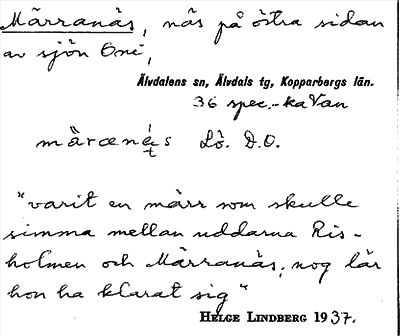 Märranäs, näs på östra sidan
av sjön Oné,
Älvdalens sn, Älvdals tg, Kopparbergs län.
36 spec.-ka Van
Lö. D.O.
"varit en märr som skulle
simma mellan uddarna Ris-
holmen och Märranäs, nog lär
hon ha klarat sig"
HELGE LINDBERG 1937.